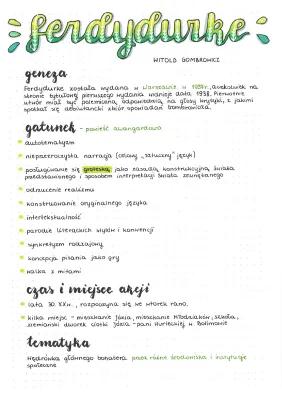 ferdydurke
WITOLD GOMBROWICZ
geneza
Ferdydurke została wydana w Warszawie w 1937r. Aczkolwiek na
stronie tytułowej pierwszego wydania widnieje data 1938. Pierwotnie
utwór miał być polemiczną odpowiedzią na głosy krytyki, z jakimi
spotkał się debiutancki zbiór opowiadań Gombrowicza.
gatunek - powieść awangardowa
autotematyzm
nieprzezroczysta narracja (celowy "sztuczny" język)
posługiwanie się groteską jako zasadą konstrukcyjną świata
przedstawionego i sposobem interpretacji świata zewnętrznego
odrzucenie realizmu
konstruowanie oryginalnego języka
intertekstualność
parodie literackich stylów i konwencji
synkretyzm rodzajowy
koncepcja pisania jako gry
walka z mitami
czas i miejsce akcji
lata 30 XXw., rozpoczyna się we wtorek rano.
kilka miejsc - mieszkanie Józia, mieszkanie Młodziaków, szkoła,
ziemiański dworek ciotki Józia - pani Hurleckiej w Bolimowie
tematyka
Wędrówka głównego bohatera przez różne środowiska i instytucje
społeczne